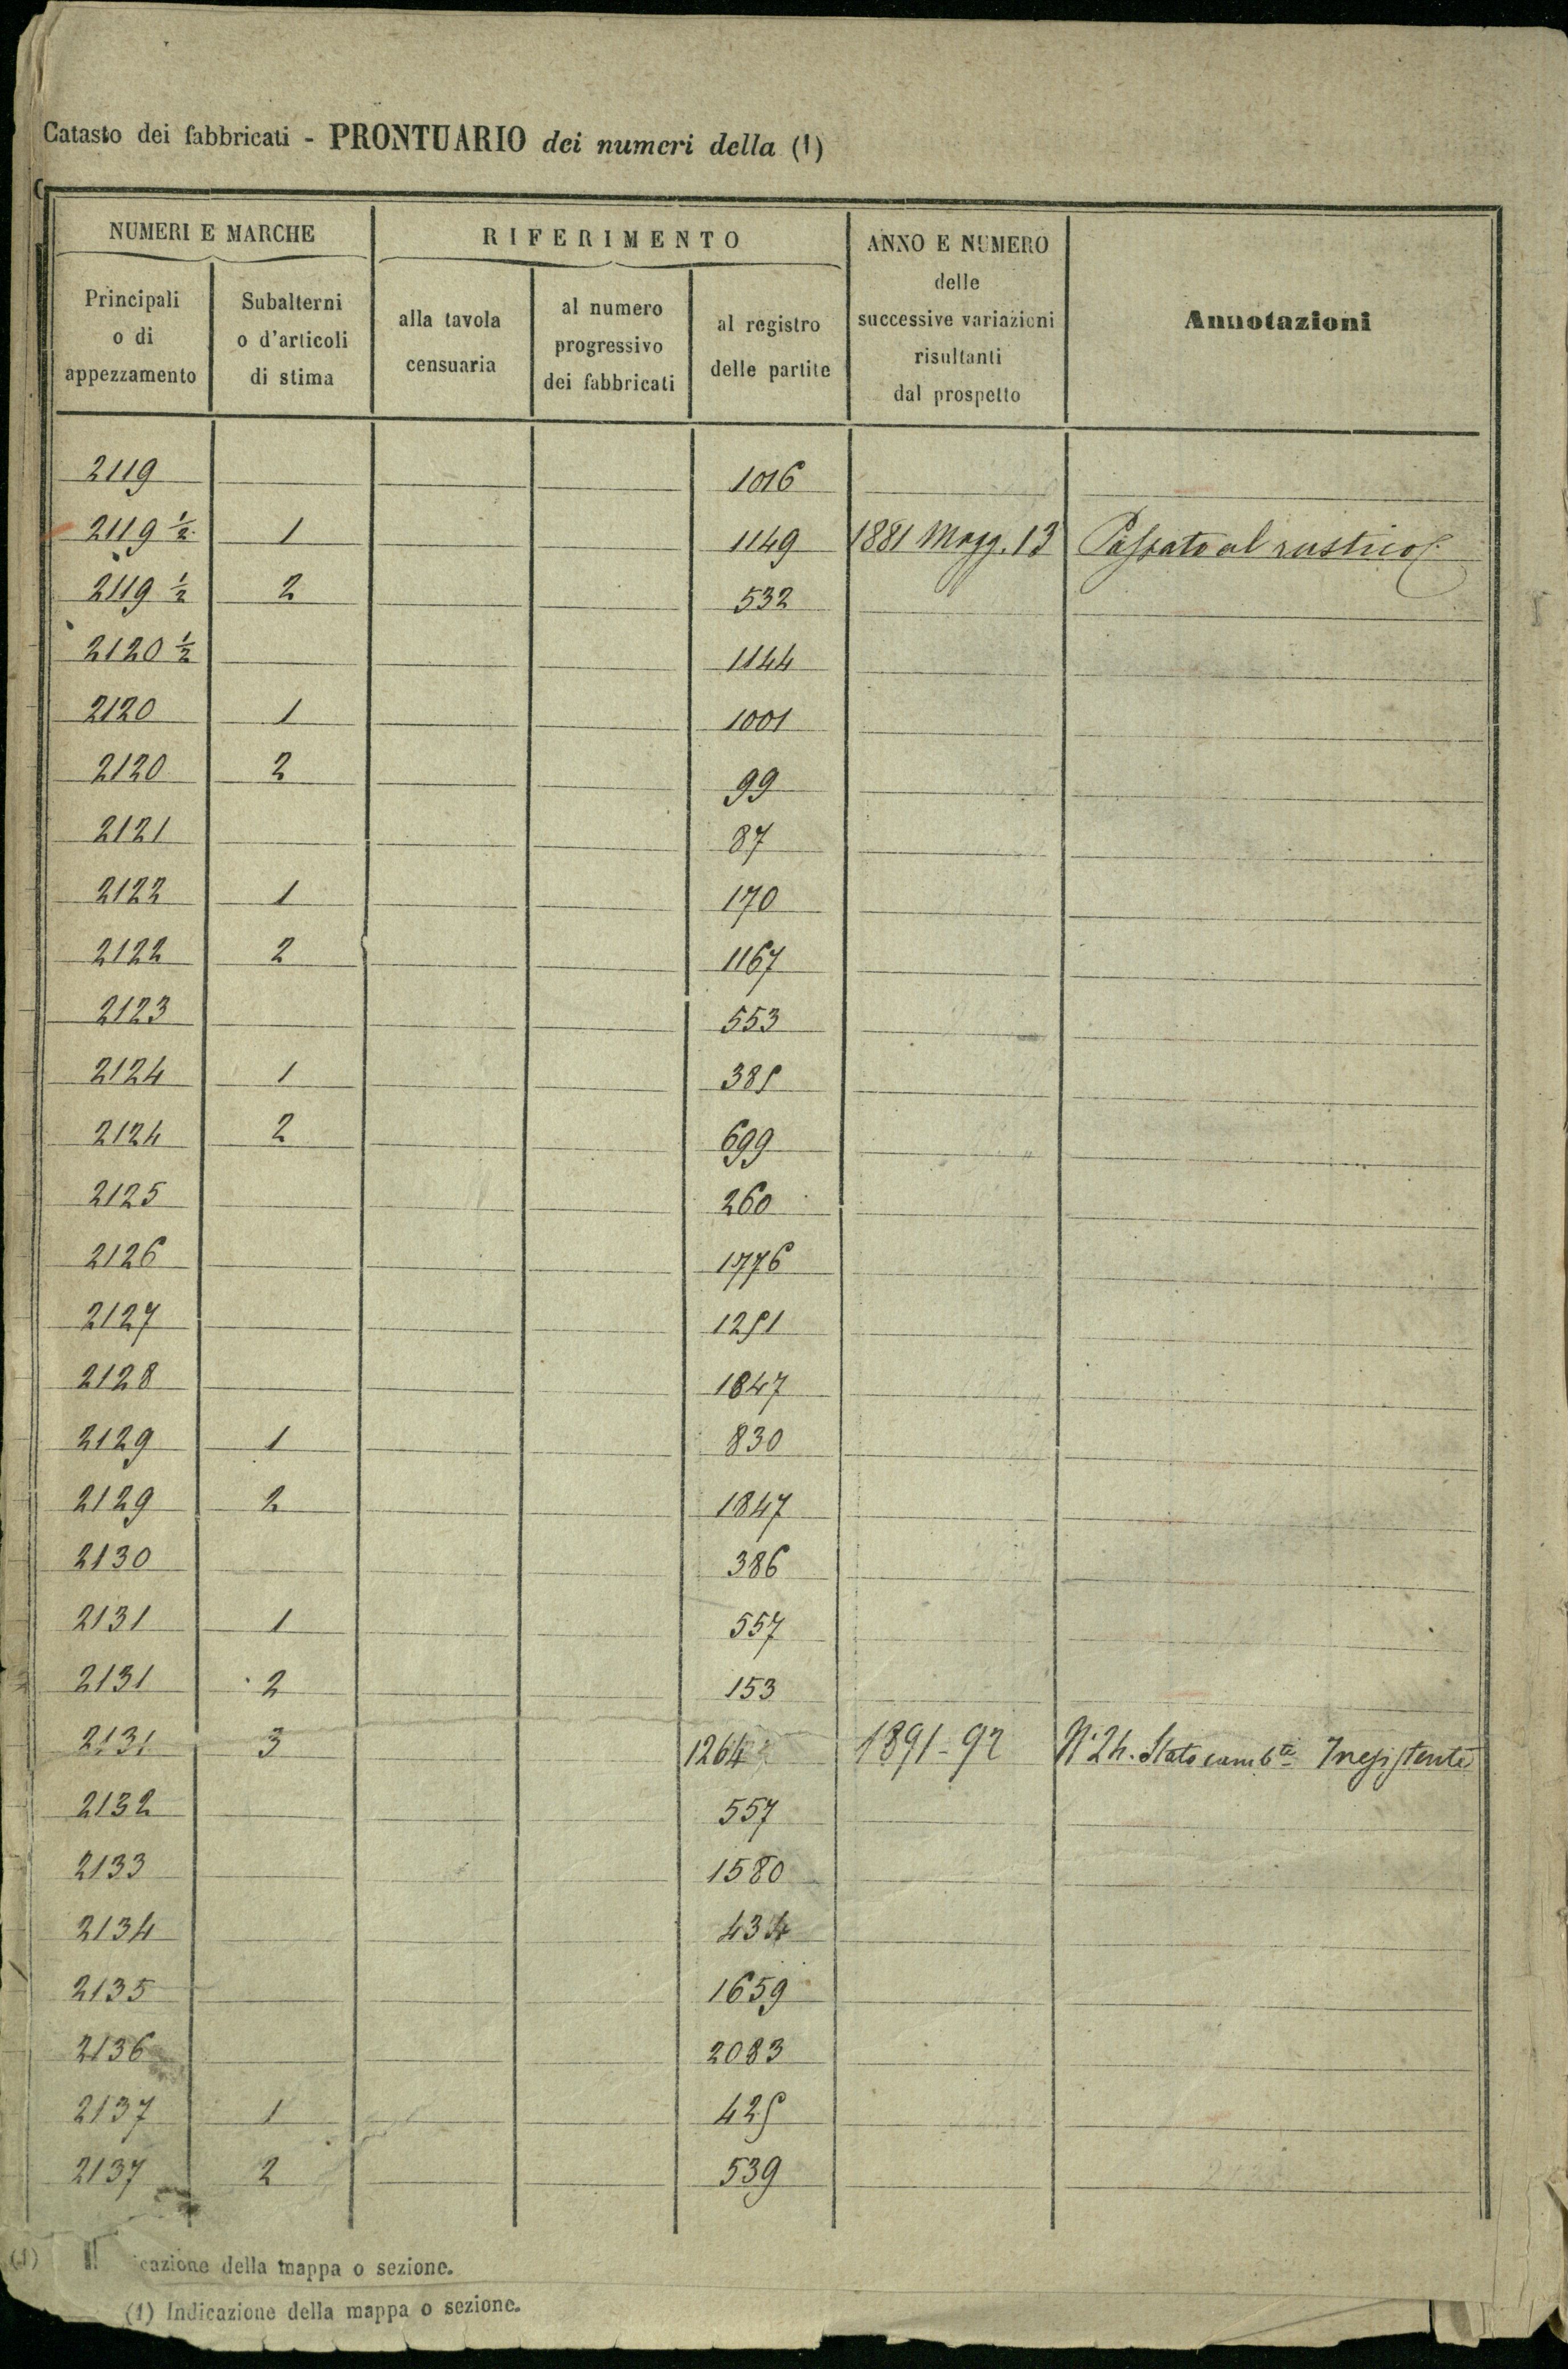 Catasto dei fabbricati - PRONTUARIO dei numeri della (1)
NUMERI E MARCHE
RIFERIMENTO
ANNO E NUMERO
delle
successive variazioni
risultanti
dal prospetto
Annotazioni
Principali
o di
appezzamento
Subalterni
o d'articoli
di stima
alla tavola
censuaria
al numero
progressivo
dei fabbricati
al registro
delle partite
2119 1016
2119 ½ 1 1149 1881 Magg. 13 Passato al rustico
2119 ½ 2 532
2120 ½ 1144
2120 1 1001
2120 2 99
2121 87
2122 1 170
2122 2 1167
2123 553
2124 1 385
2124 2 699
2125 260
2126 1776
2127 1251
2128 1847
2129 1 830
2129 2 1847
2130 386
2131 1 557
2131 2 153
2131 3 1264 1891-92 N. 24. Stato camb.te Inesistente
2132 557
2133 1580
2134 434
2135 1659
2136 2083
2137 1 425
2137 2 539
(1) icazione della mappa o sezione.
(1) Indicazione della mappa o sezione.